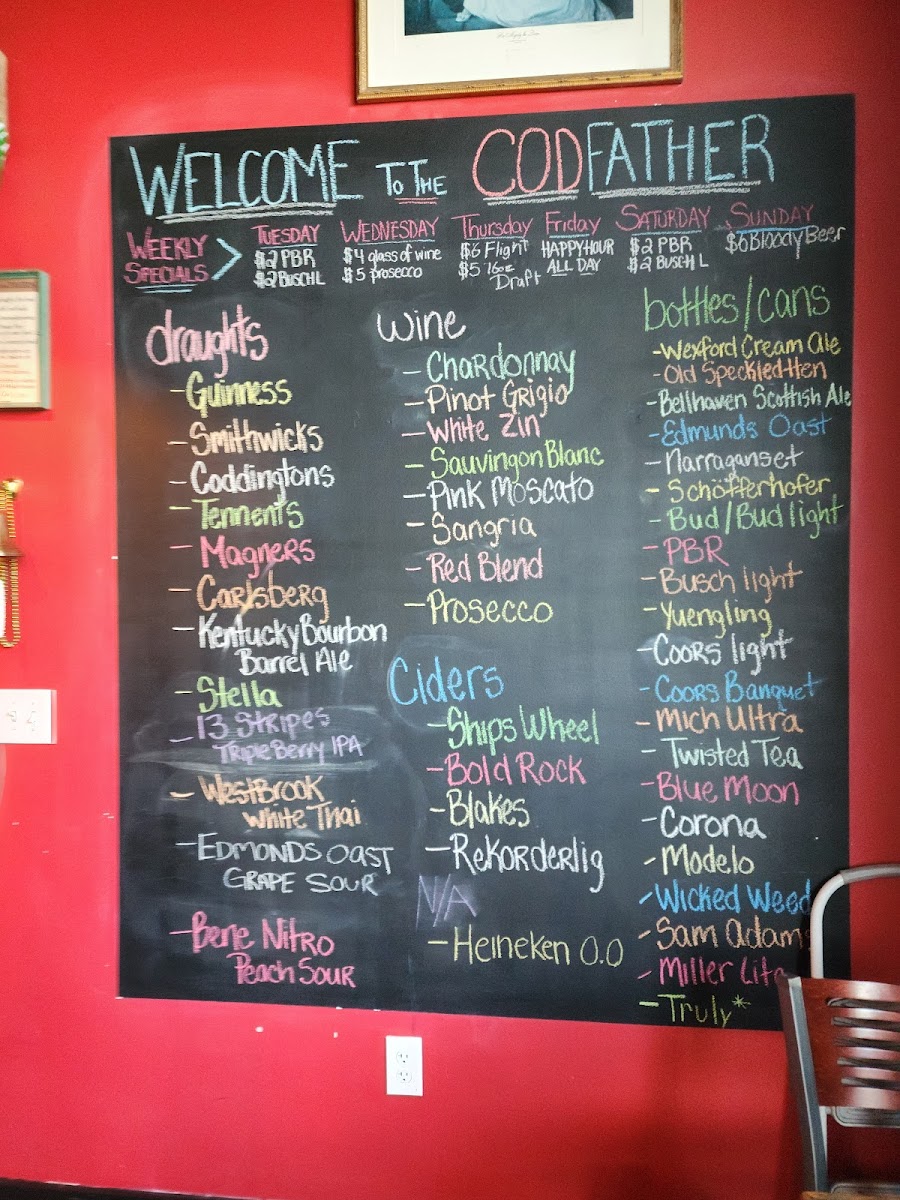 WELCOME TO THE CODFATHER
WEEKLY SPECIALS >
TUESDAY
$2 PBR
$2 BUSCH L
WEDNESDAY
$4 glass of wine
$5 prosecco
Thursday
$6 Flight
$5 16oz
Draft
Friday
HAPPY HOUR
ALL DAY
SATURDAY
$2 PBR
$2 BUSCH L
SUNDAY
$6 Bloody Beer
draughts
- Guinness
- Smithwicks
- Coddingtons
- Tennents
- Magners
- Carlsberg
- Kentucky Bourbon
Barrel Ale
- Stella
- 13 Stripes
Triple Berry IPA
- WestBrook
White Thai
- EDMONDS OAST
GRAPE SOUR
- Bene Nitro
Peach Sour
wine
- Chardonnay
- Pinot Grigio
- White Zin
- Sauvingon Blanc
- Pink Moscato
- Sangria
- Red Blend
- Prosecco
Ciders
- Ships Wheel
- Bold Rock
- Blakes
- Rekorderlig
N/A
- Heineken 0.0
bottles/cans
- Wexford Cream Ale
- Old Speckled Hen
- Bellhaven Scottish Ale
- Edmunds Oast
- Narraganset
- Schöfferhofer
- Bud/Bud light
- PBR
- Busch light
- Yuengling
- Coors light
- Coors Banquet
- Mich Ultra
- Twisted Tea
- Blue Moon
- Corona
- Modelo
- Wicked Weed
- Sam Adams
- Miller Lite
- Truly*